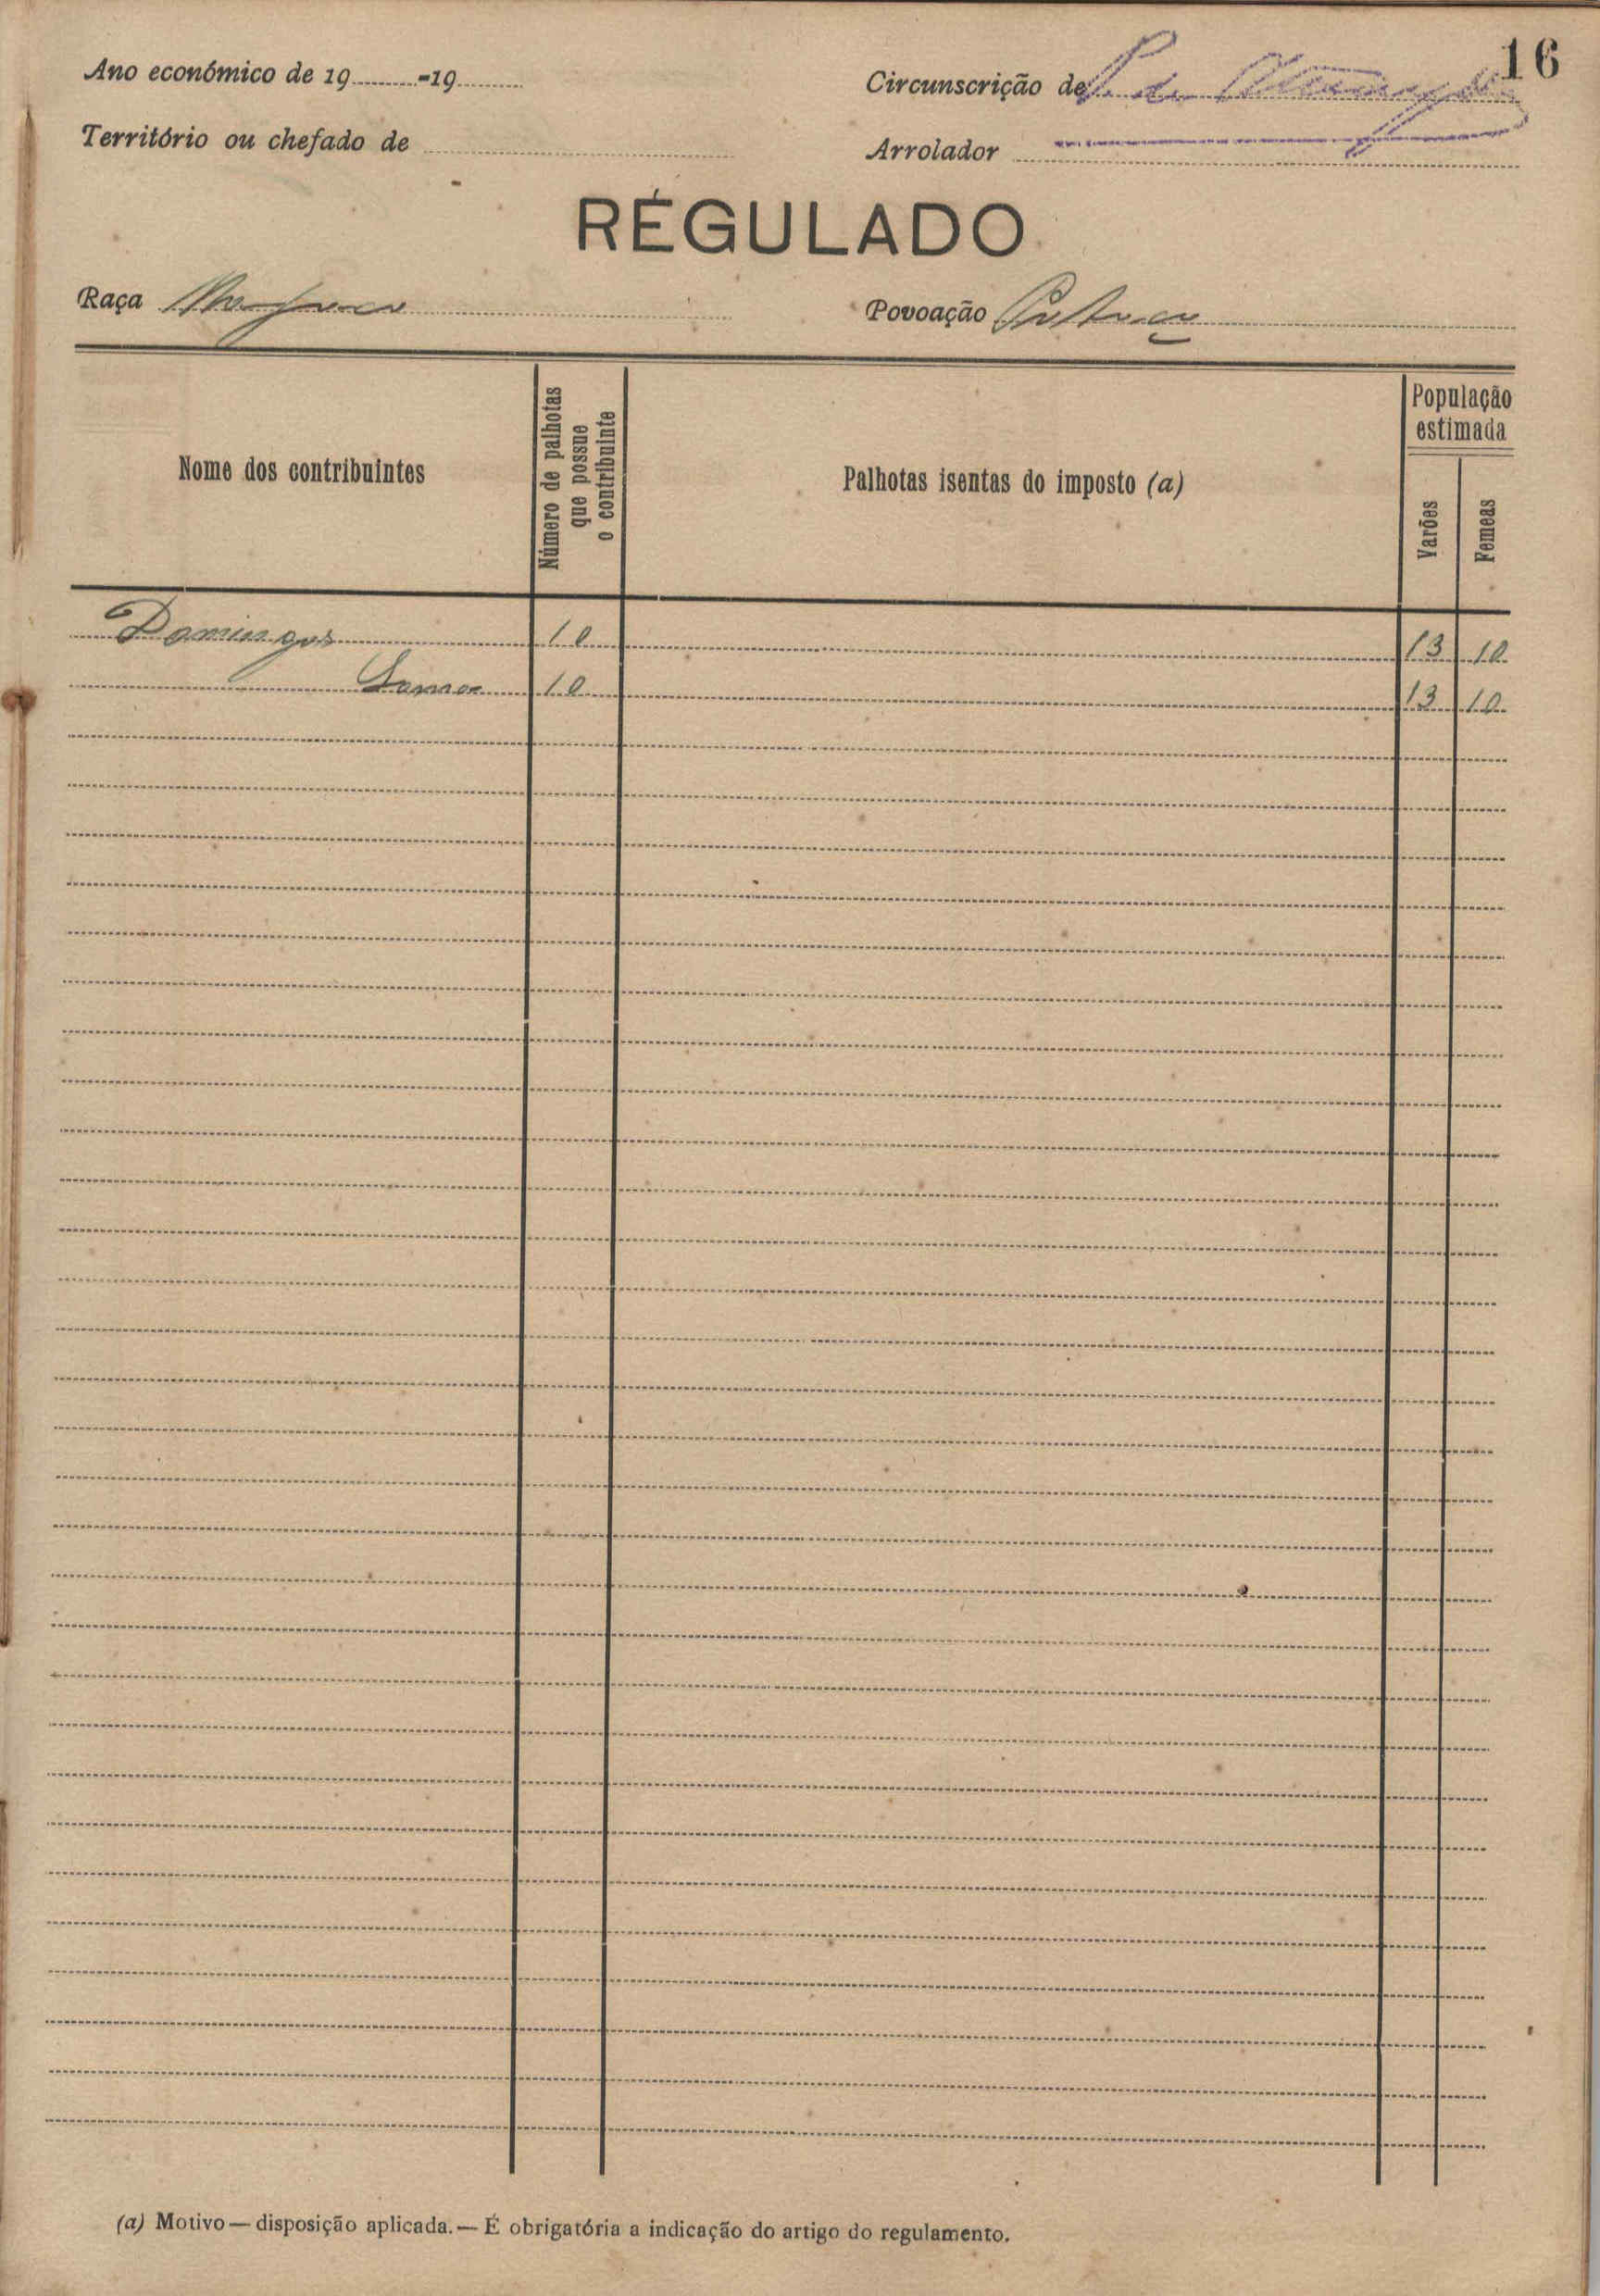 16
Ano económico de 19 -19
Circunscrição de
Território ou chefado de
Arrolador
RÉGULADO
Raça
Povoação
Nome dos contribuintes
Número de palhotas
que possue
o contribuinte
Palhotas isentas do imposto (a)
População
estimada
Varões
Femeas
Domingos 10 13 10
Soma 10 13 10
(a) Motivo — disposição aplicada. — É obrigatória a indicação do artigo do regulamento.